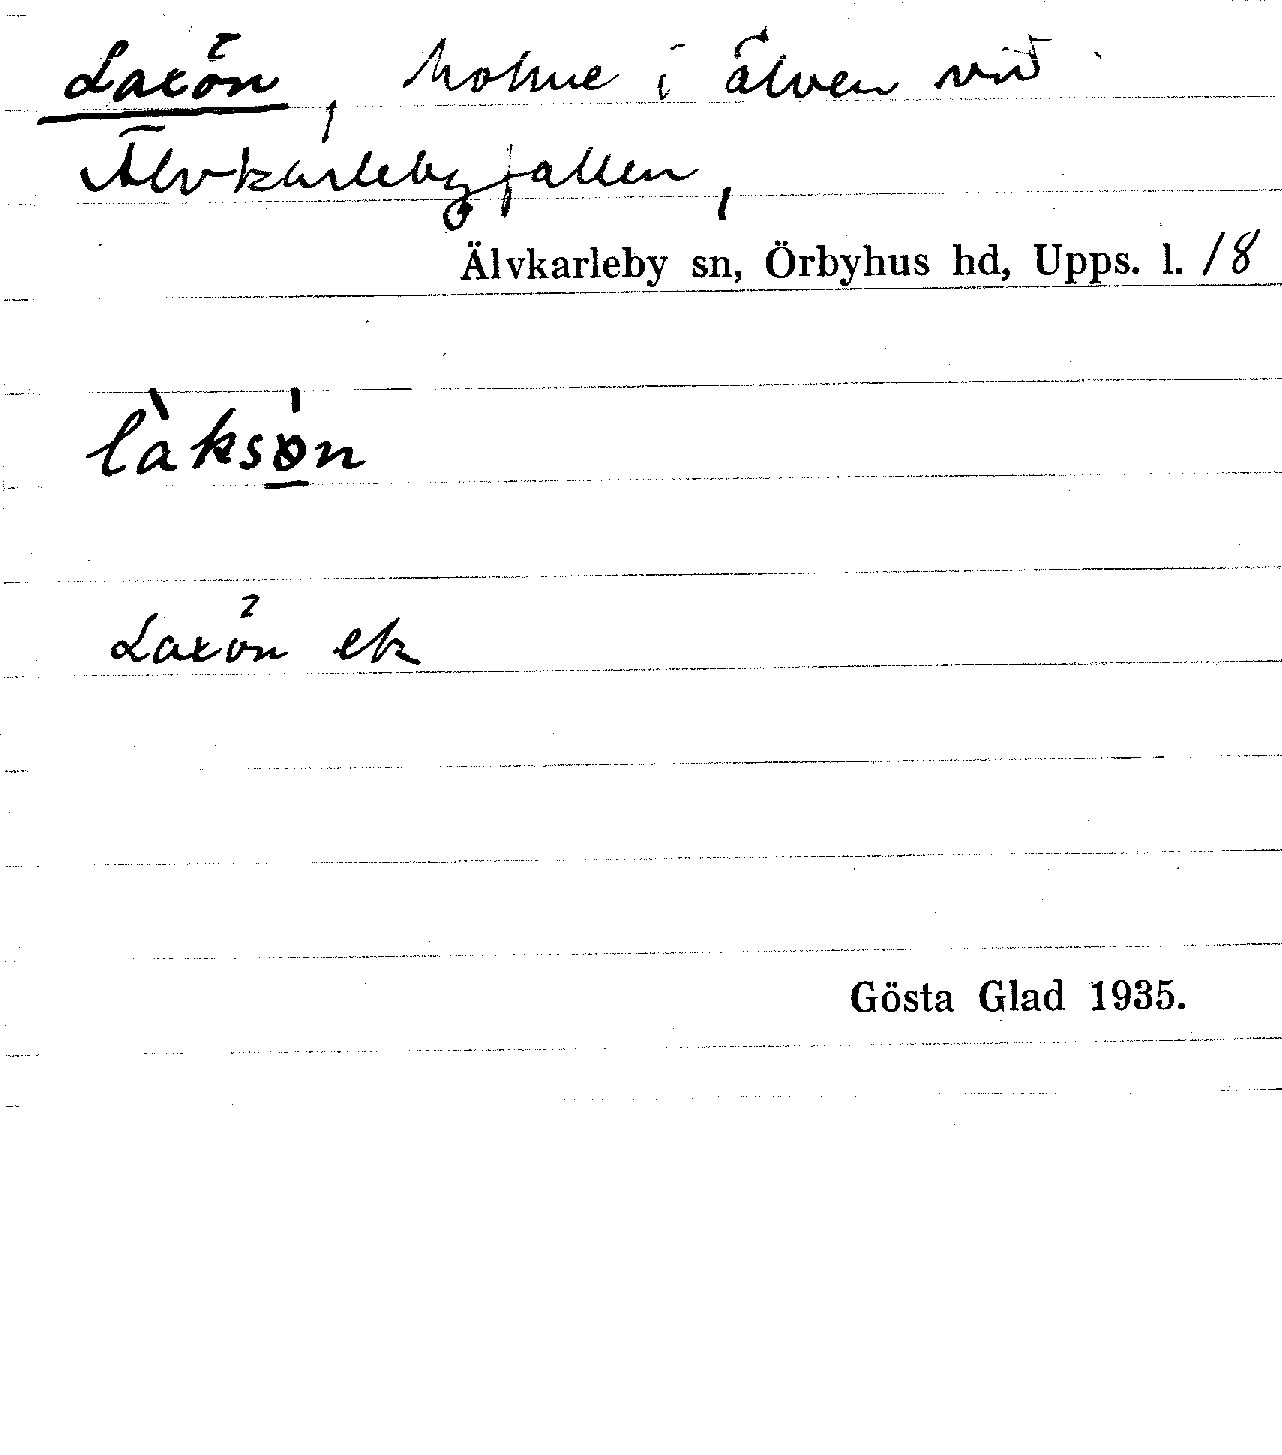 Laxön, holme i älven vid
Älvkarlebyfallen,
Älvkarleby sn, Örbyhus hd, Upps. l. 18
làksǿ̱n
Laxön ek
Gösta Glad 1935.